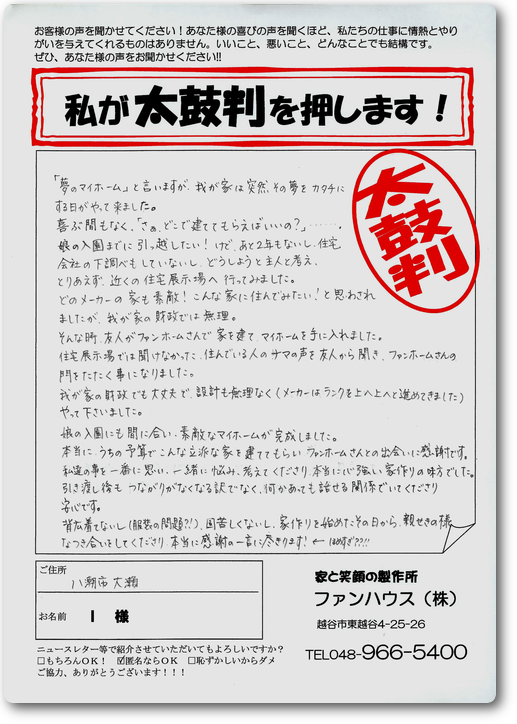 お客様の声を聞かせてください！あなた様の喜びの声を聞くほど、私たちの仕事に情熱とやり
がいを与えてくれるものはありません。いいこと、悪いこと、どんなことでも結構です。
ぜひ、あなた様の声をお聞かせください!!
私が太鼓判を押します！
太鼓判
「夢のマイホーム」と言いますが、我が家は突然、その夢をカタチに
する日がやって来ました。
喜ぶ間もなく、「さぁ、どこで建ててもらえばいいの？」……。
娘の入園までに引っ越したい！けど、あと2年もないし、住宅
会社の下調べもしていないし、どうしようと主人と考え、
とりあえず、近くの住宅展示場へ行ってみました。
どのメーカーの家も素敵！こんな家に住んでみたい！と思わされ
ましたが、我が家の財政では無理。
そんな時、友人がファンホームさんで家を建て、マイホームを手に入れました。
住宅展示場では聞けなかった、住んでいる人のナマの声を友人から聞き、ファンホームさんの
門をたたく事になりました。
我が家の財政でも大丈夫で、設計も無理なく（メーカーはランクを上へ上へと進めてきました）
やって下さいました。
娘の入園にも間に合い、素敵なマイホームが完成しました。
本当に、うちの予算でこんな立派な家を建ててもらい、ファンホームさんとの出会いに感謝です。
私達の事を一番に思い、一緒に悩み、考えてくださり、本当に心強い家作りの味方でした。
引き渡し後も つながりがなくなる訳でなく、何かあっても話せる関係でいてくださり
安心です。
背広着てないし（服装の問題?!）、固苦しくないし、家作りを始めたその日から、親せきの様
なつき合いをしてくださり、本当に感謝の一言に尽きります！ ← ほめすぎ???!!
ご住所
八潮市大瀬
お名前 I 様
家と笑顔の製作所
ファンハウス（株）
越谷市東越谷4-25-26
TEL048-966-5400
ニュースレター等で紹介させていただいてもよろしいですか？
□もちろんOK！ ☑匿名ならOK □恥ずかしいからダメ
ご協力、ありがとうございます！！！